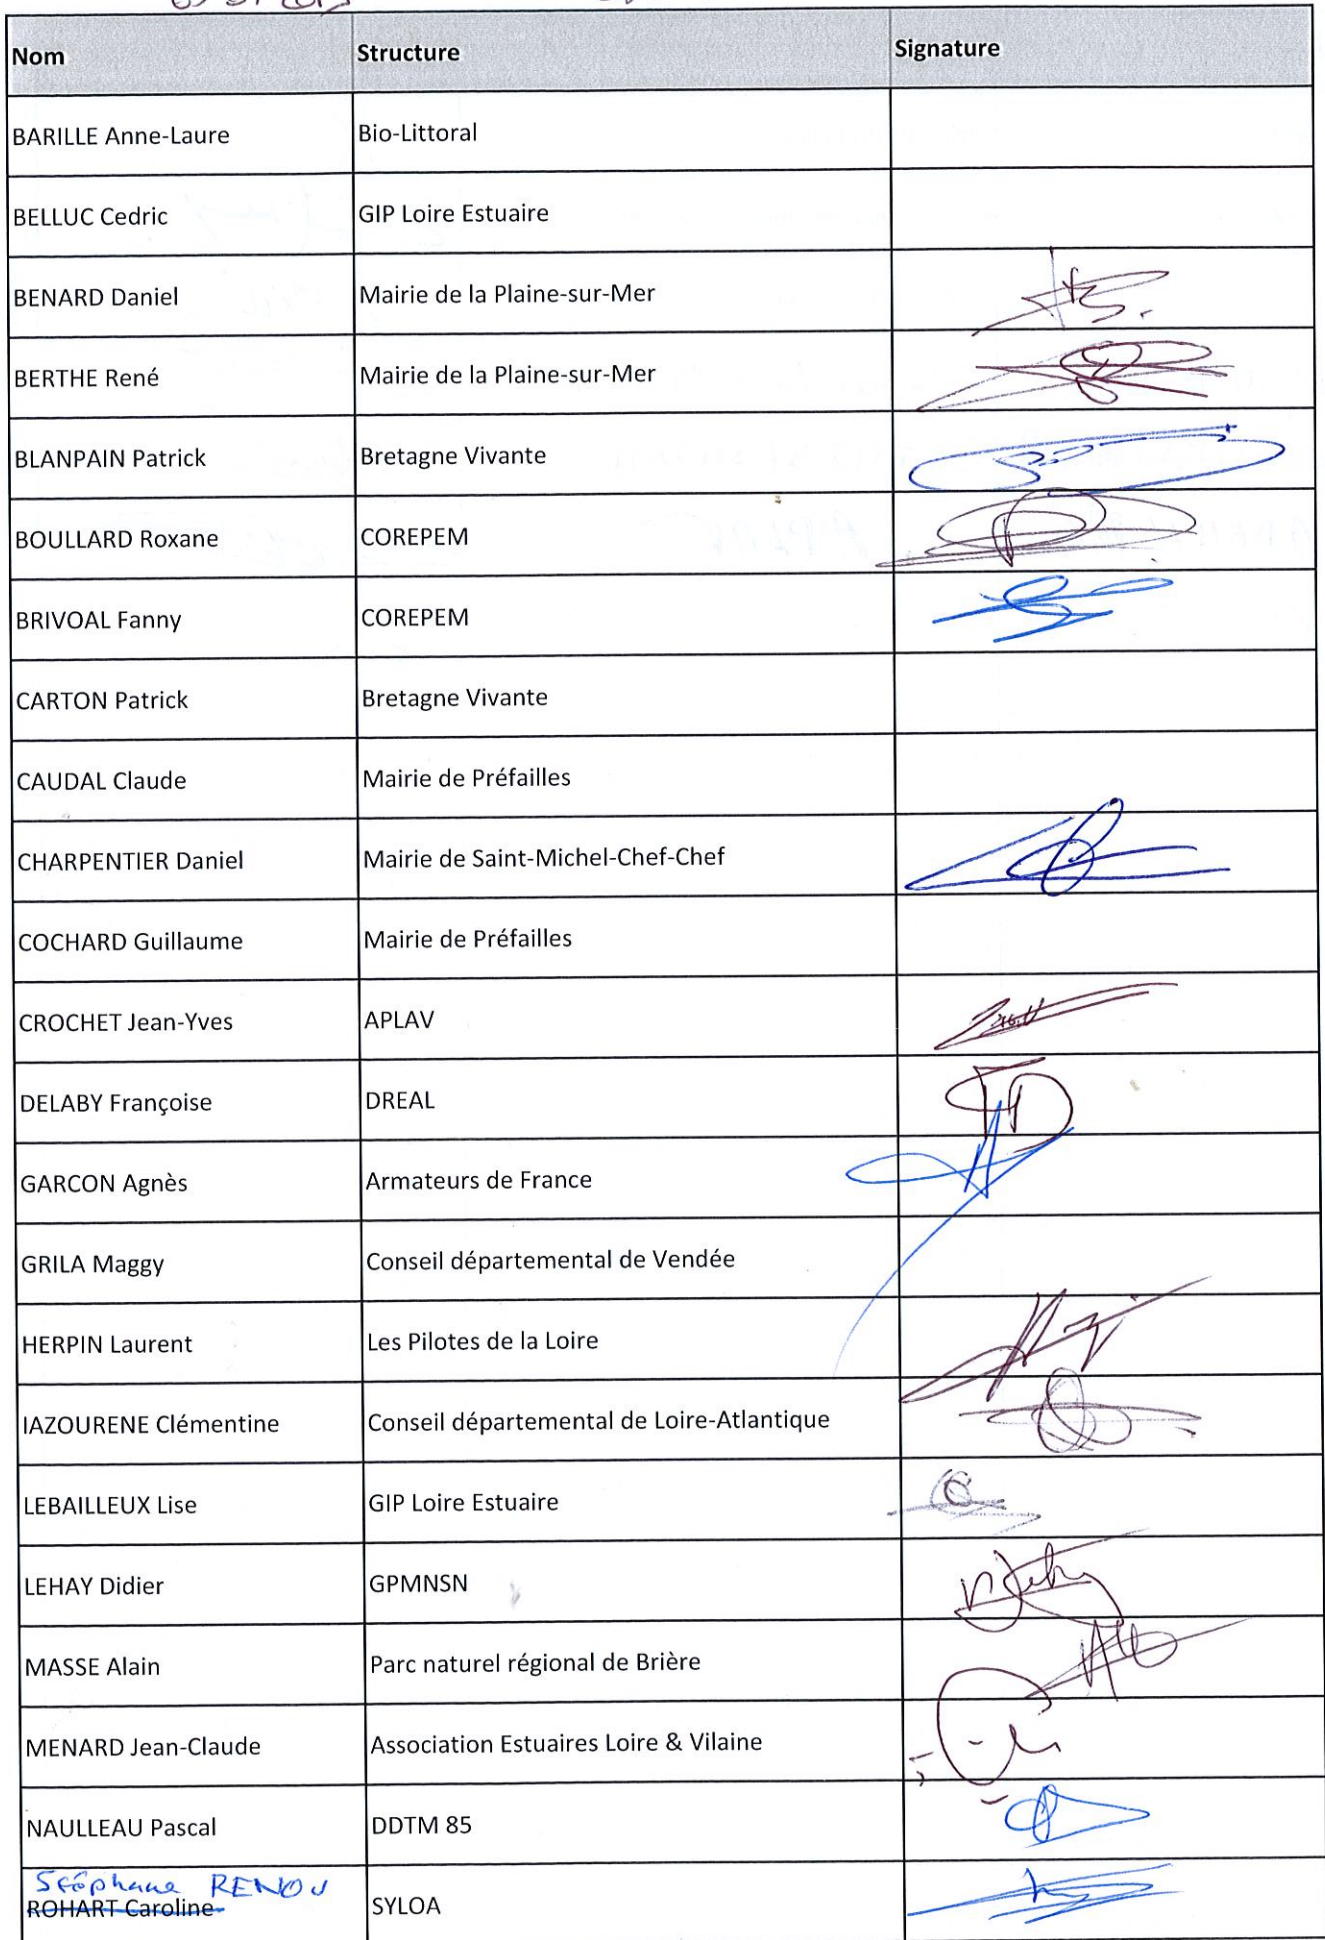 Nom Structure Signature
BARILLE Anne-Laure Bio-Littoral
BELLUC Cedric GIP Loire Estuaire
BENARD Daniel Mairie de la Plaine-sur-Mer
BERTHE René Mairie de la Plaine-sur-Mer
BLANPAIN Patrick Bretagne Vivante
BOULLARD Roxane COREPEM
BRIVOAL Fanny COREPEM
CARTON Patrick Bretagne Vivante
CAUDAL Claude Mairie de Préfailles
CHARPENTIER Daniel Mairie de Saint-Michel-Chef-Chef
COCHARD Guillaume Mairie de Préfailles
CROCHET Jean-Yves APLAV
DELABY Françoise DREAL
GARCON Agnès Armateurs de France
GRILA Maggy Conseil départemental de Vendée
HERPIN Laurent Les Pilotes de la Loire
IAZOURENE Clémentine Conseil départemental de Loire-Atlantique
LEBAILLEUX Lise GIP Loire Estuaire
LEHAY Didier GPMNSN
MASSE Alain Parc naturel régional de Brière
MENARD Jean-Claude Association Estuaires Loire & Vilaine
NAULLEAU Pascal DDTM 85
Stéphane RENOU
ROHART Caroline SYLOA